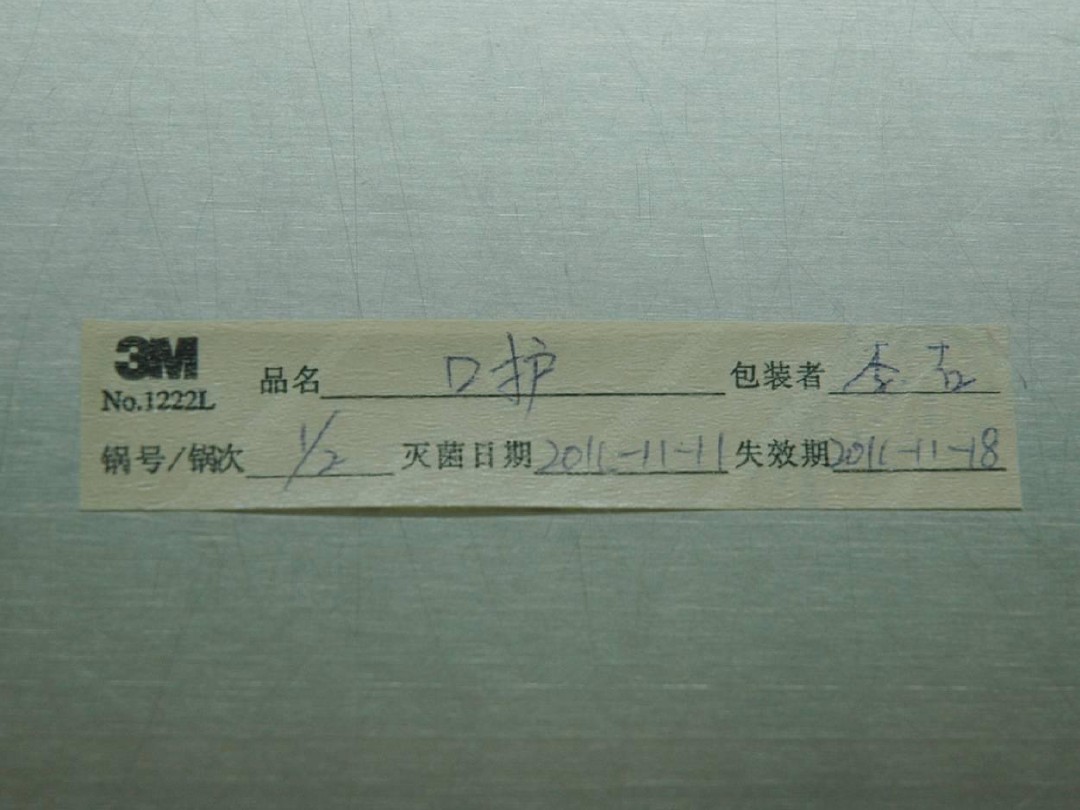 3M
No.1222L
品名 口护 包装者 李吉
锅号/锅次 1/2 灭菌日期 2011-11-11 失效期 2011-11-18